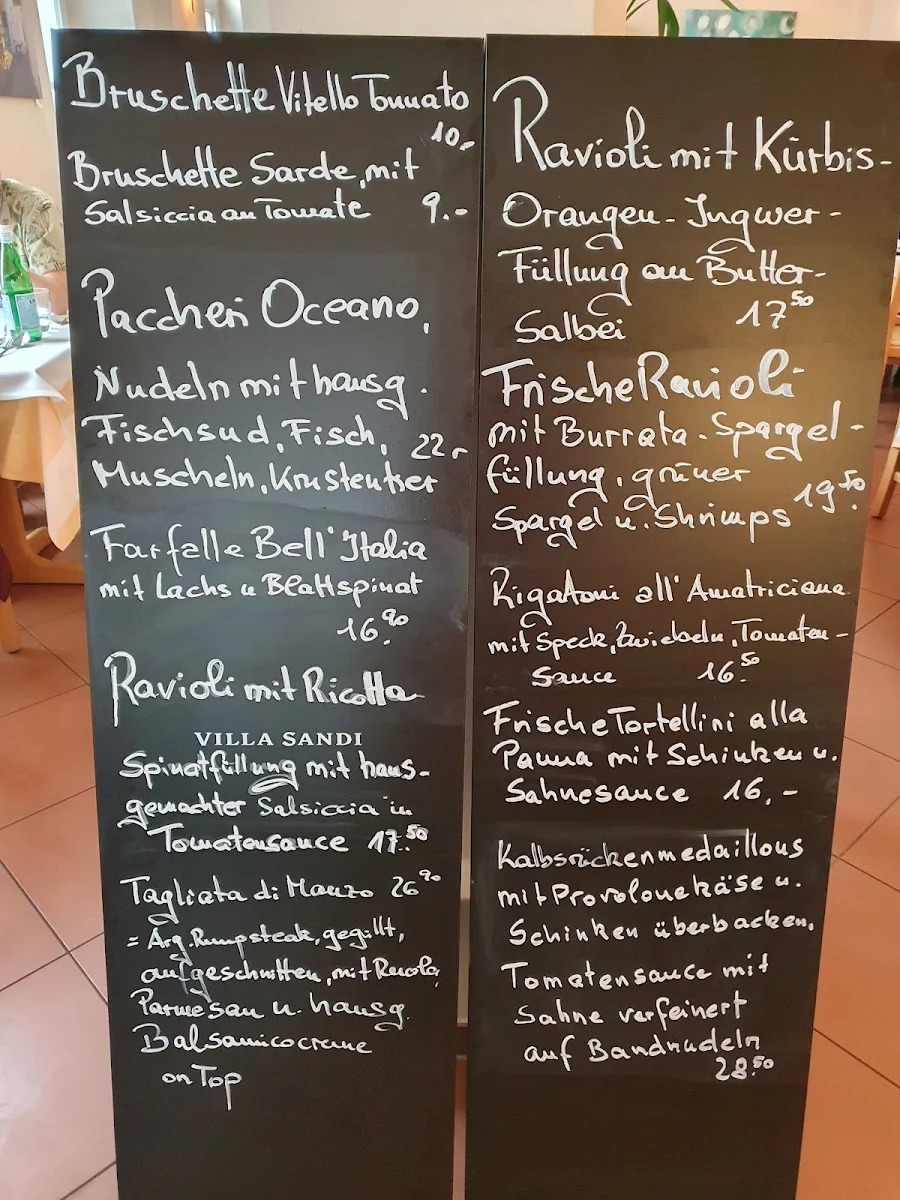 Bruschette Vitello Tonnato
10,-
Bruschette Sarde, mit
Salsiccia an Tomate 9.-
Paccheri Oceano,
Nudeln mit hausg.
Fischsud, Fisch, 22,-
Muscheln, Krustentier
Farfalle Bell'Italia
mit Lachs u Blattspinat
16.90
Ravioli mit Ricotta
VILLA SANDI
Spinatfüllung mit haus-
gemachter Salsiccia in
Tomatensauce 17.50
Tagliata di Manzo 26.90
= Arg. Rumpsteak, gegrillt,
aufgeschnitten, mit Rucola,
Parmesan u. hausg.
Balsamicocreme
on Top
Ravioli mit Kürbis-
Orangen-Ingwer-
Füllung an Butter-
Salbei 17.50
Frische Ravioli
mit Burrata-Spargel-
füllung, grüner
Spargel u. Shrimps 19.50
Rigatoni all'Amatriciana
mit Speck, Zwiebeln, Tomaten-
Sauce 16.50
Frische Tortellini alla
Panna mit Schinken u.
Sahnesauce 16,-
Kalbsrückenmedaillons
mit Provolonekäse u.
Schinken überbacken,
Tomatensauce mit
Sahne verfeinert
auf Bandnudeln
28.50